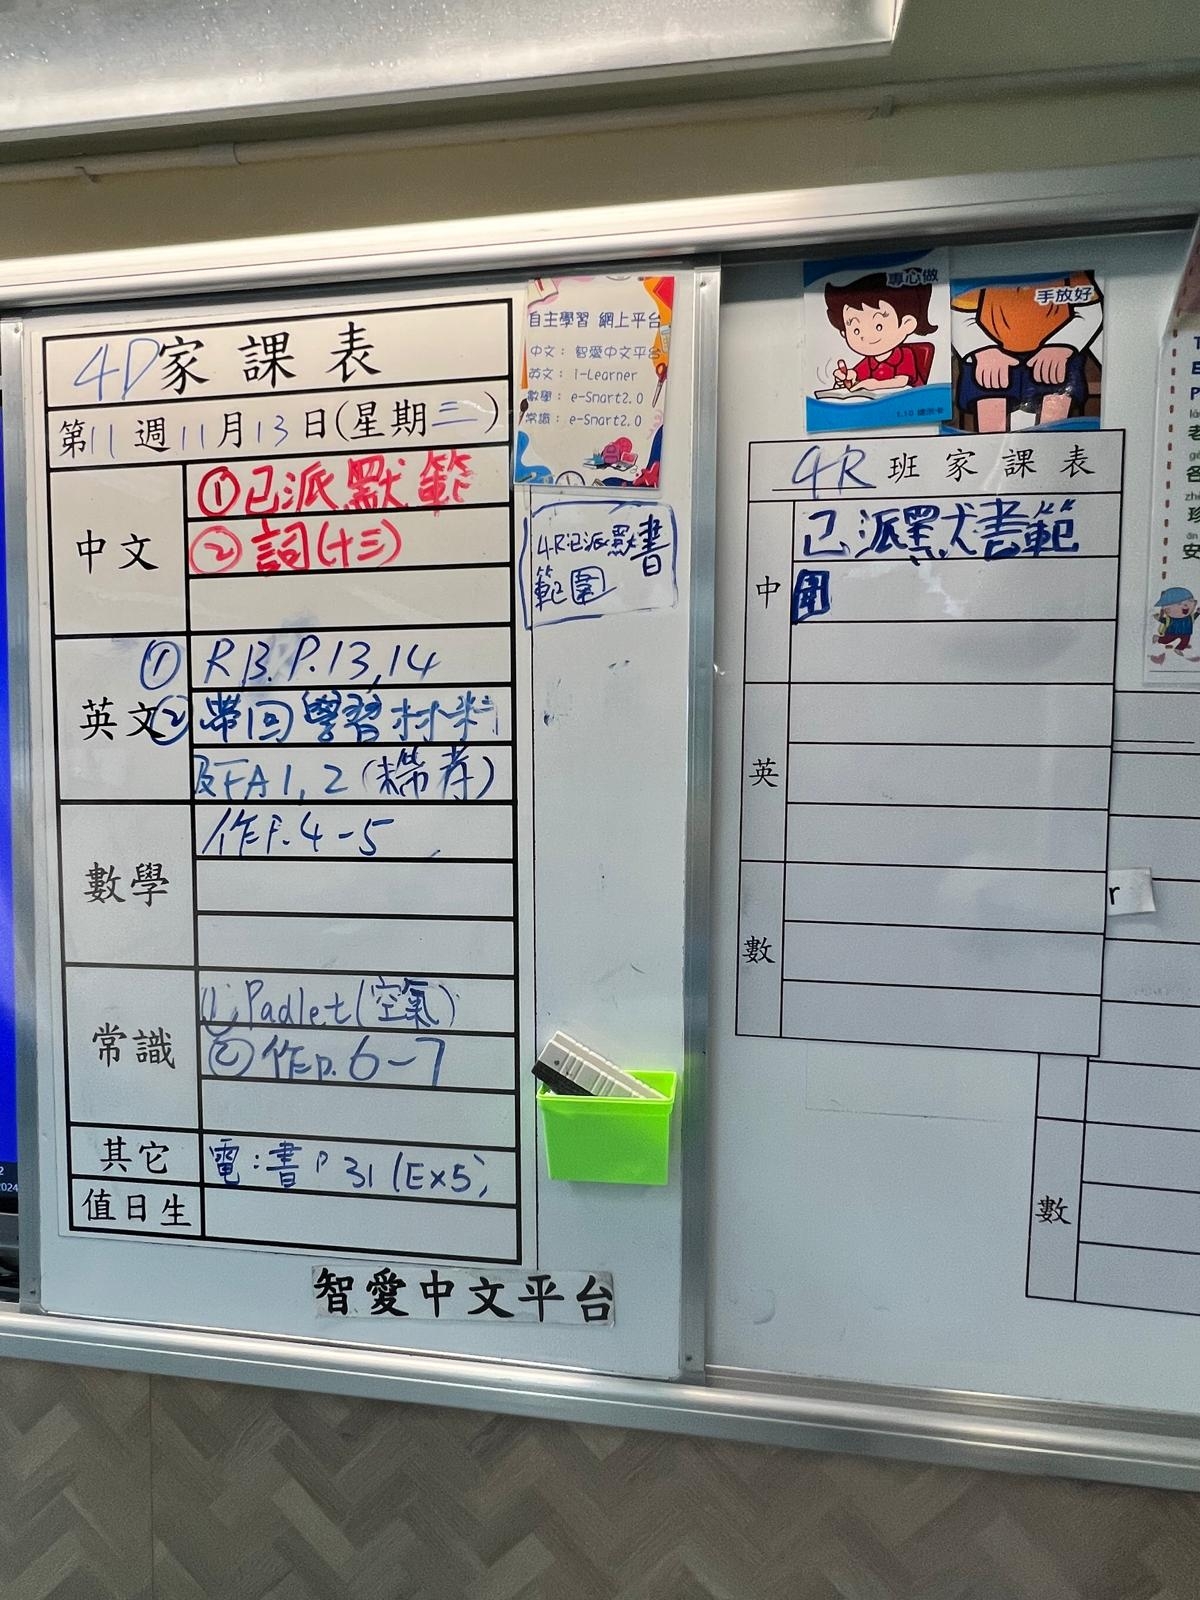 4D家課表
第11週11月13日(星期三)
中文
①已派默範
②詞(十三)
英文
① RB.P.13,14
② 帶回學習材料
及FA1,2(未帶者)
數學
作P.4-5
常識
①Padlet(空氣)
②作p.6-7
其它
電:書P31(Ex5)
值日生
智愛中文平台
自主學習 網上平台
中文: 智愛中文平台
英文: i-Learner
數學: e-Smart2.0
常識: e-Smart2.0
4R已派默書
範圍
專心做
手放好
4R班家課表
中
已派默書範
圍
英
數
r
數
2024